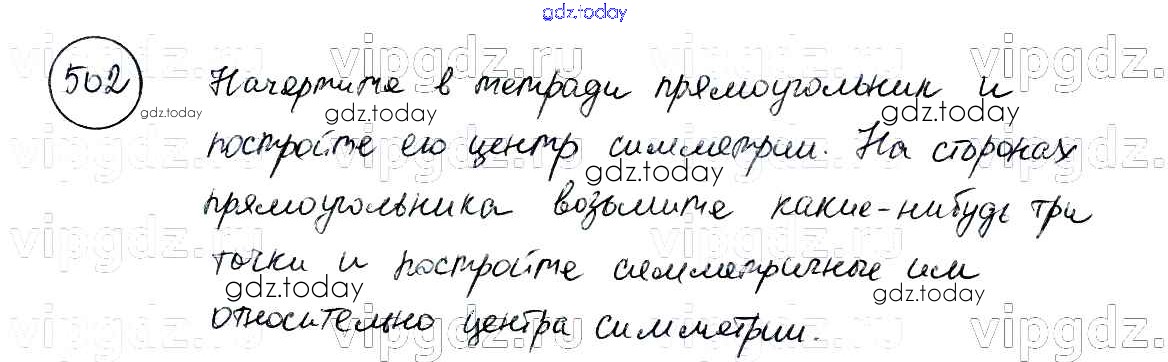 gdz.today
vipgdz.ru vipgdz.ru vipgdz.ru vipgdz.ru
502 Начертите в тетради прямоугольник и
gdz.today gdz.today gdz.today
постройте его центр симметрии. На сторонах
gdz.today
прямоугольника возьмите какие-нибудь три
vipgdz.ru vipgdz.ru vipgdz.ru vipgdz.ru
точки и постройте симметричные им
gdz.today gdz.today
относительно центра симметрии.
vipgdz.ru vipgdz.ru vipgdz.ru vipgdz.ru